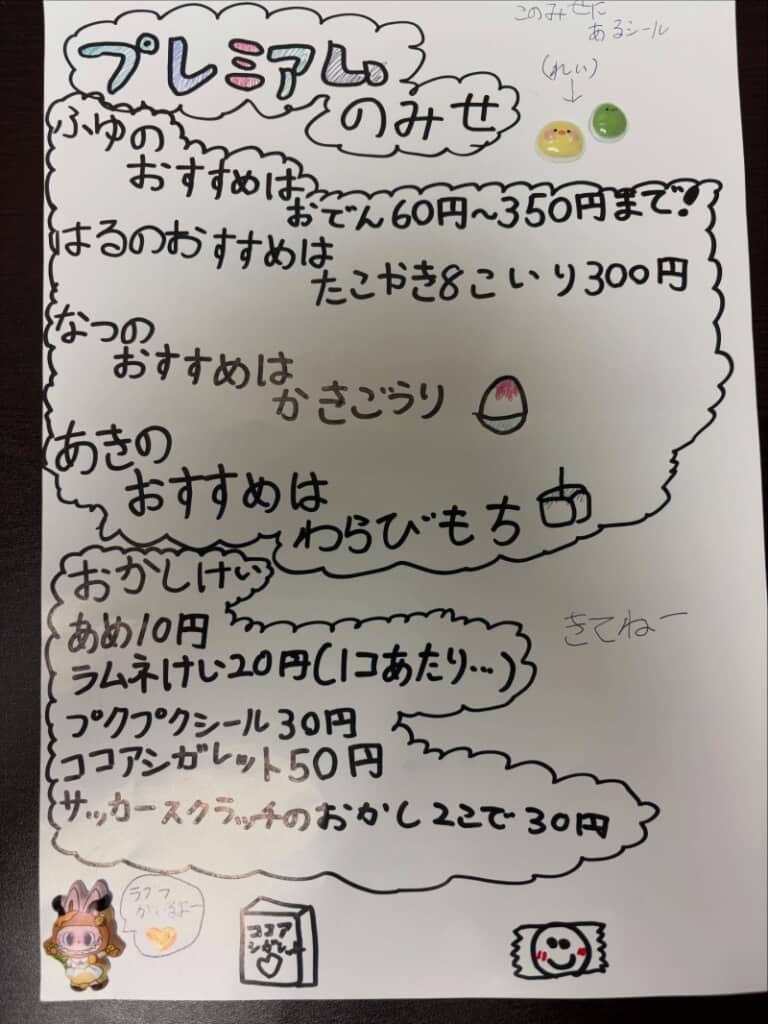 プレミアム
のみせ
このみせに
あるシール
(れい)
ふゆの
おすすめは
おでん60円~350円まで!
はるのおすすめは
たこやき8こいり300円
なつの
おすすめは
かきごうり
あきの
おすすめは
わらびもち
おかしけい
あめ10円
ラムネけい20円(1コあたり…)
プクプクシール30円
ココアシガレット50円
サッカースクラッチのおかし2こで30円
きてねー
ココア
シガレット